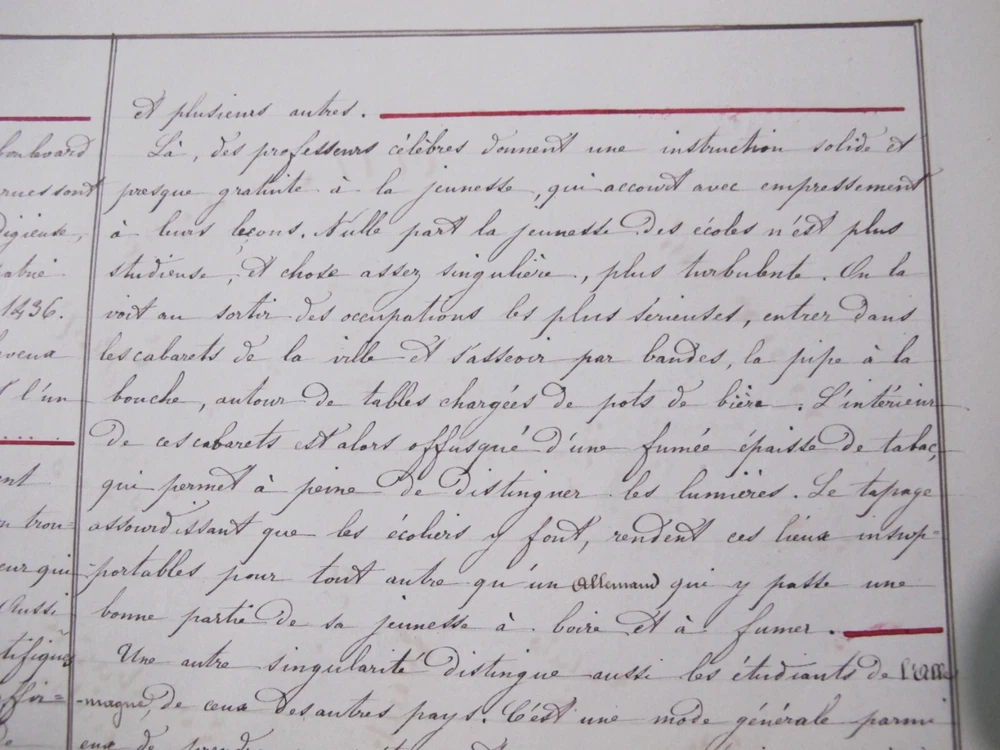 et plusieurs autres.
Là, des professeurs célèbres donnent une instruction solide et
presque gratuite à la jeunesse, qui accourt avec empressement
à leurs leçons. Nulle part la jeunesse des écoles n'est plus
studieuse, et chose assez singulière, plus turbulente. On la
voit au sortir des occupations les plus sérieuses, entrer dans
les cabarets de la ville et s'asseoir par bandes, la pipe à la
bouche, autour de tables chargées de pots de bière. L'intérieur
de ces cabarets est alors offusqué d'une fumée épaisse de tabac,
qui permet à peine de distinguer les lumières. Le tapage
assourdissant que les écoliers y font, rendent ces lieux insup=
portables pour tout autre qu'un Allemand qui y passe une
bonne partie de sa jeunesse à boire et à fumer.
Une autre singularité distingue aussi les étudiants de l'Alle
-magne, de ceux des autres pays. C'est une mode générale parmi
eux de prendre
rues sont
digieuse,
1436.
l'un
eur qui
Aussi